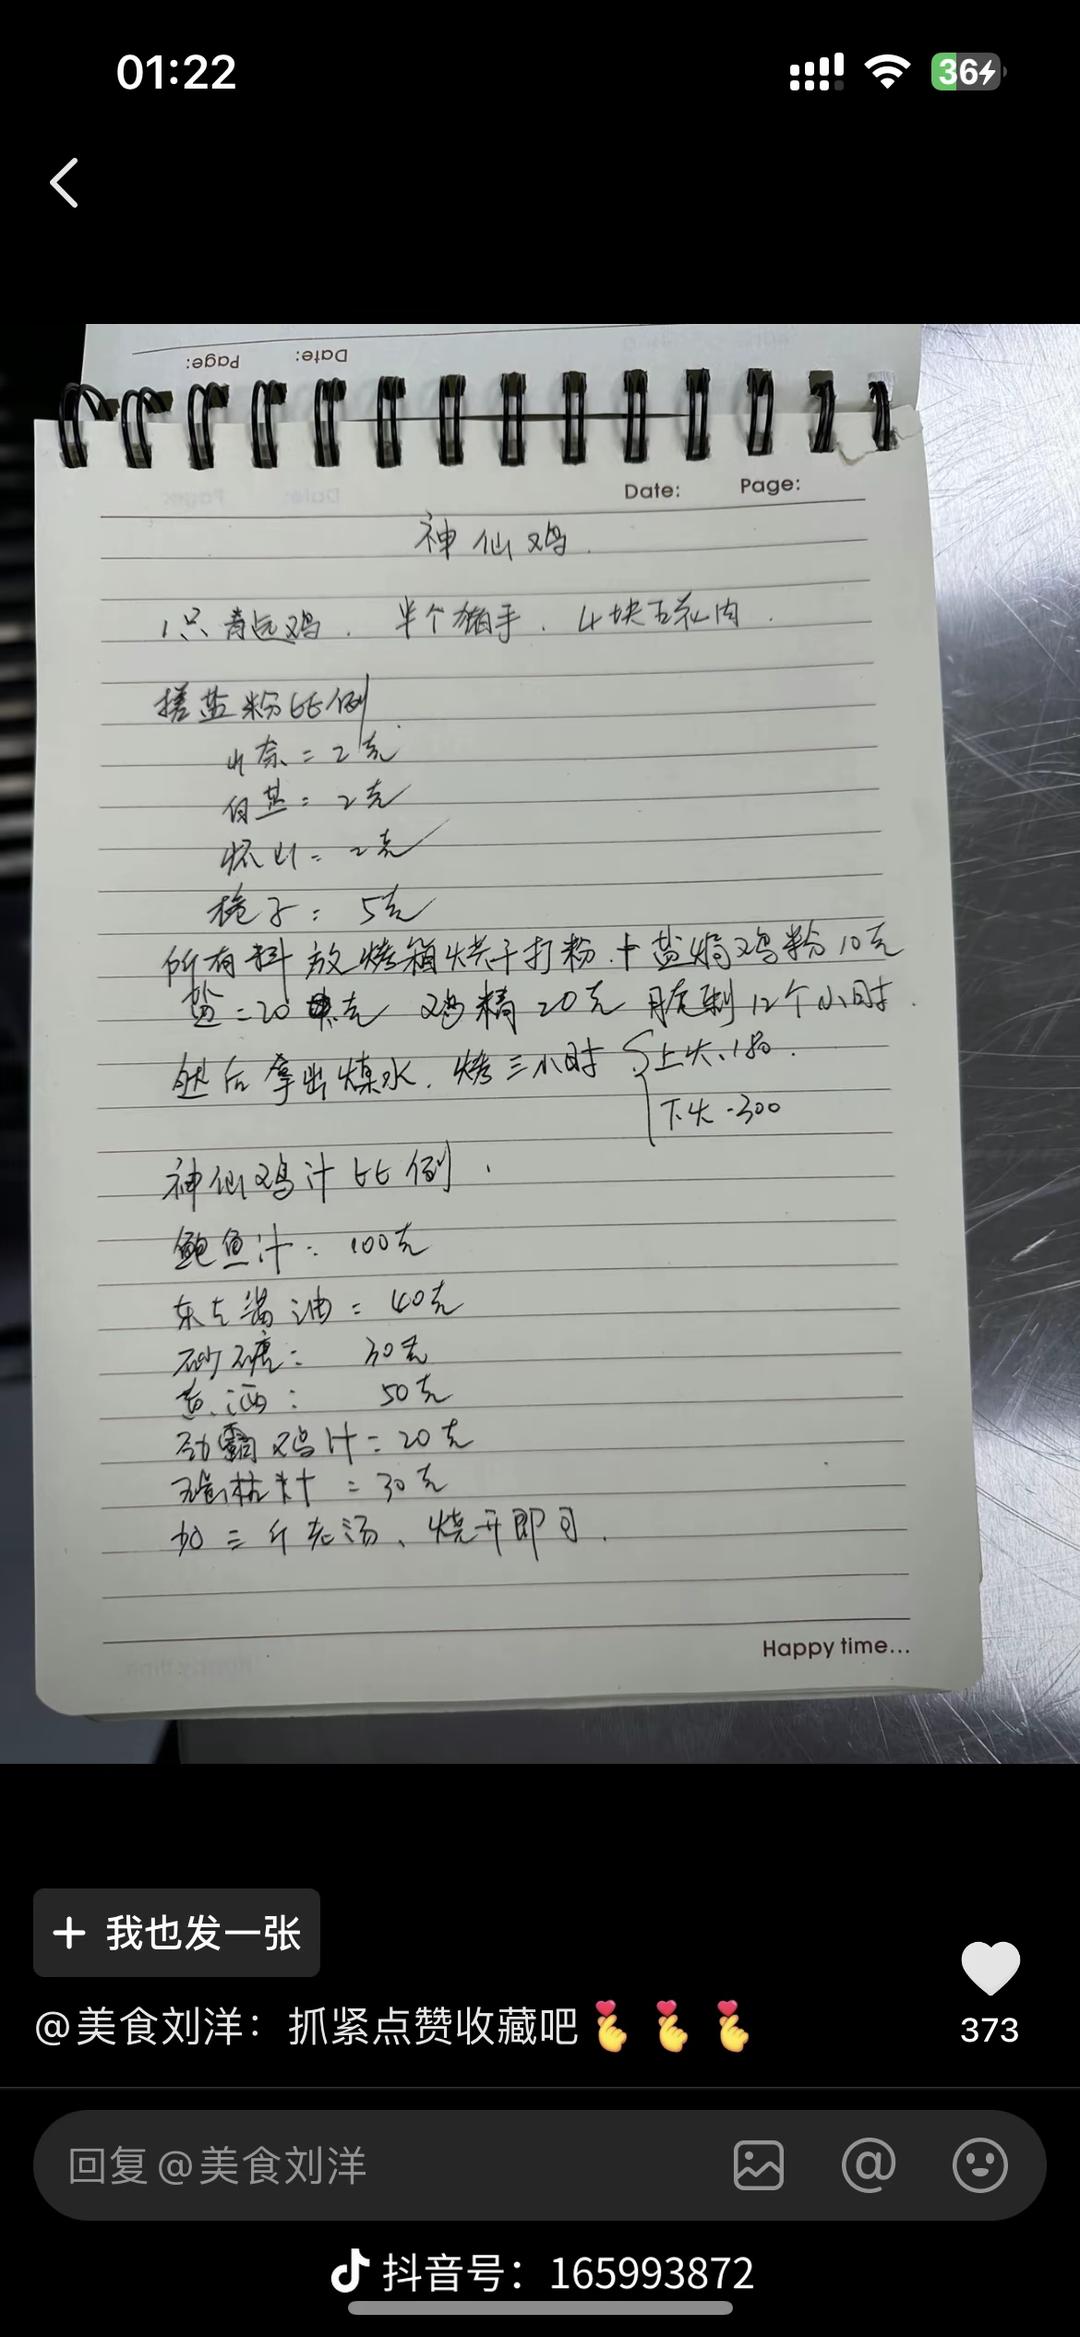 01:22
36
Page:
Date:
Date: Page:
神仙鸡.
1只清远鸡. 半个猪手. 4块五花肉.
搓盐粉比例
山奈=2克
白芷=2克
怀山=2克
栀子: 5克
所有料放烤箱烘干打粉.+盐焗鸡粉10克
盐=20克 鸡精20克 腌制12个小时.
然后拿出煤水.烤三小时 上火.180.
下火.300
神仙鸡汁比例.
鲍鱼汁: 100克
东古酱油=40克
砂糖: 30克
黄酒: 50克
劲霸鸡汁=20克
=30克
加三斤老汤、烧开即可.
Happy time...
+ 我也发一张
@美食刘洋：抓紧点赞收藏吧
373
回复@美食刘洋
抖音号：165993872